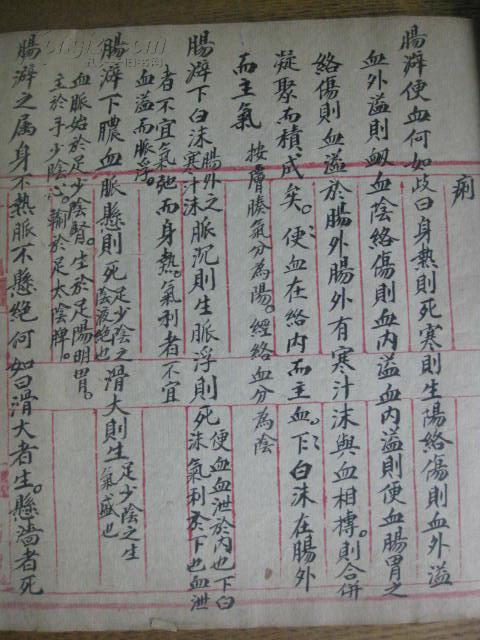 痢
腸澼便血何如歧曰身熱則死寒則生陽絡傷則血外溢
血外溢則衂血陰絡傷則血內溢血內溢則便血腸胃之
絡傷則血溢於腸外腸外有寒汁沫與血相摶。則合併
凝聚而積成矣。便血在絡內而主血。下白沫在腸外
而主氣 按膚腠氣分為陽。經絡血分為陰
腸澼下白沫腸外之寒汁沫脈沉則生脈浮則死便血血泄於內也下白沫氣利於下也血泄
者不宜氣弛而身熱。氣利者不宜
血溢而脈浮。
腸澼下膿血脈懸則死足少陰之陰液絕也滑大則生足少陰之生氣盛也
血脈始於足少陰腎。生於足陽明胃。
主於手少陰心。輸於足太陰脾。
腸澼之属身不熱脈不懸絕何如曰滑大者生。懸濇者死